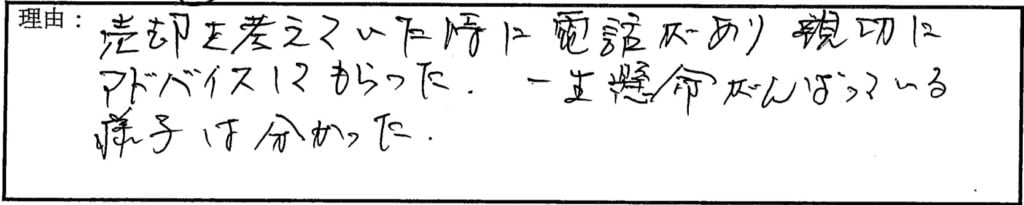 理由：売却を考えていた時に電話があり親切に
アドバイスしてもらった．一生懸命がんばっている
様子は分かった．